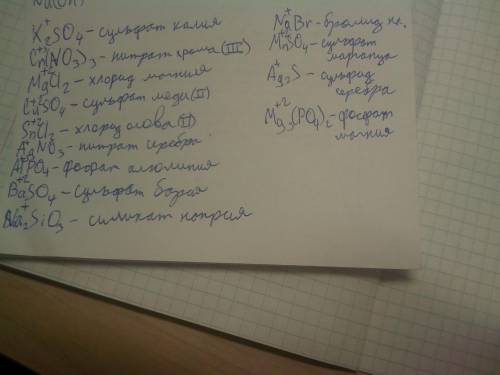 Na(OH)
K₂⁺SO₄ - сульфат калия
Cr⁺³(NO₃)₃ - нитрат хрома (III)
Mg⁺²Cl₂ - хлорид магния
Cu⁺²SO₄ - сульфат меди (II)
Sn⁺²Cl₂ - хлорид олова (II)
Ag⁺NO₃ - нитрат серебра
AlPO₄ - фосфат алюминия
Ba⁺²SO₄ - сульфат бария
Na₂⁺SiO₃ - силикат натрия
Na⁺Br - бромид на.
Mn⁺²SO₄ - сульфат
марганца
Ag₂⁺S - сульфид
серебра
Mg₃⁺²(PO₄)₂ - фосфат
магния